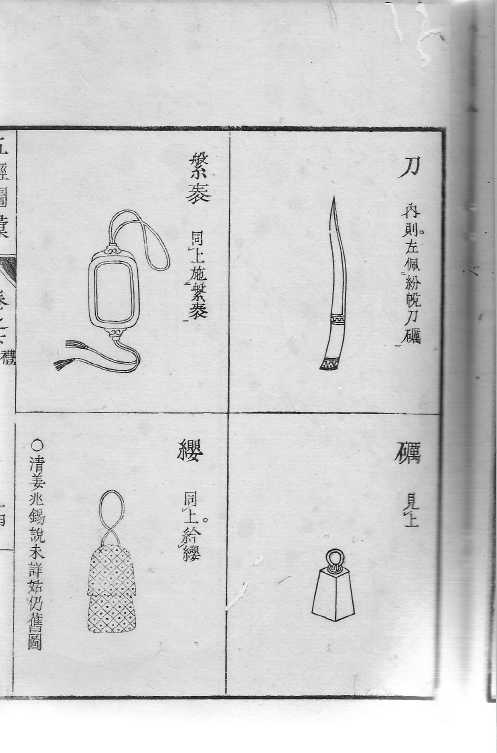 刀
內則。左佩紛帨刀礪
礪
見上
繫袠
同上施繫袠
纓
同上。給纓
○清姜兆錫說未詳姑仍舊圖
五經圖彙